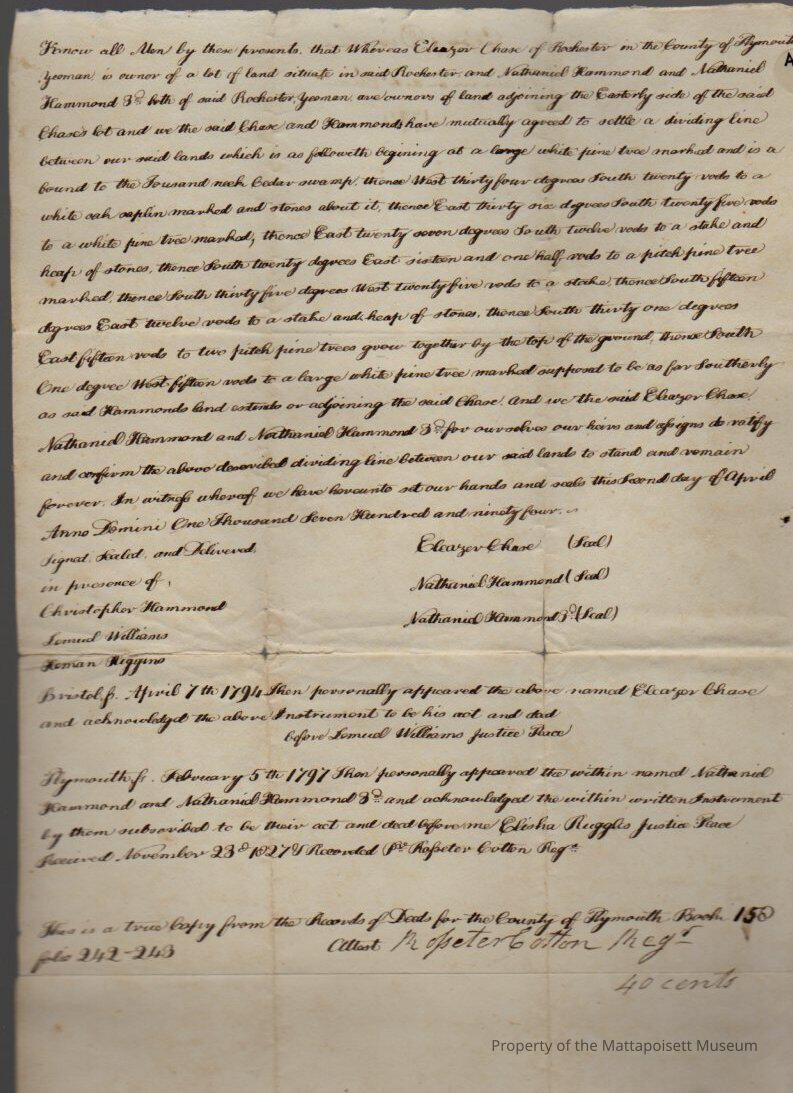 Know all Men by these presents, that Whereas Eleazer Chase of Rochester in the County of Plymouth
yeoman, is owner of a lot of land situate in said Rochester, and Nathaniel Hammond and Nathaniel
Hammond 3d. both of said Rochester, yeoman, are owners of land adjoining the Easterly side of the said
Chase's lot and we the said Chase and Hammonds have mutually agreed to settle a dividing line
between our said lands which is as followeth begining at a large white pine tree marked and is a
bound to the Tousand neck Cedar swamp, thence West thirty four degrees South twenty rods to a
white oak saplin marked and stones about it, thence East thirty six degrees South twenty five rods
to a white pine tree marked, thence East twenty seven degrees South twelve rods to a stake and
heap of stones, thence South twenty degrees East sixteen and one half rods to a pitch pine tree
marked, thence South thirty five degrees West twenty five rods to a stake, thence South fifteen
degrees East twelve rods to a stake and heap of stones, thence South thirty one degrees
East fifteen rods to two pitch pine trees grow together by the top of the ground, thence South
One degree West fifteen rods to a large white pine tree marked supposed to be as far Southerly
as said Hammonds land extends or adjoining the said Chase. And we the said Eleazer Chase,
Nathaniel Hammond and Nathaniel Hammond 3d. for ourselves our heirs and assigns do ratify
and confirm the above described dividing line between our said lands to stand and remain
forever. In witness whereof we have hereunto set our hands and seals this Second day of April
Anno Domini One Thousand Seven Hundred and ninety four.
Signed, Sealed, and Delivered, Eleazer Chase (Seal)
in presence of, Nathaniel Hammond (Seal)
Christopher Hammond Nathaniel Hammond 3d. (Seal)
Lemuel Williams
Heman Higgins
Bristol ss. April 7th 1794. Then personally appeared the above named Eleazer Chase
and acknowledged the above Instrument to be his act and deed
before Lemuel Williams Justice Peace
Plymouth ss. February 5th 1797 Then personally appeared the within named Nathaniel
Hammond and Nathaniel Hammond 3d. and acknowledged the within written Instrument
by them subscribed to be their act and deed before me Elisha Ruggles Justice Peace
Received November 23d 1827 & Recorded Pr. Rosseter Cotton Regr.
This is a true Copy from the Records of Deeds for the County of Plymouth Book 158
folio 242-243 Attest Rosseter Cotton Regr
40 cents
Property of the Mattapoisett Museum